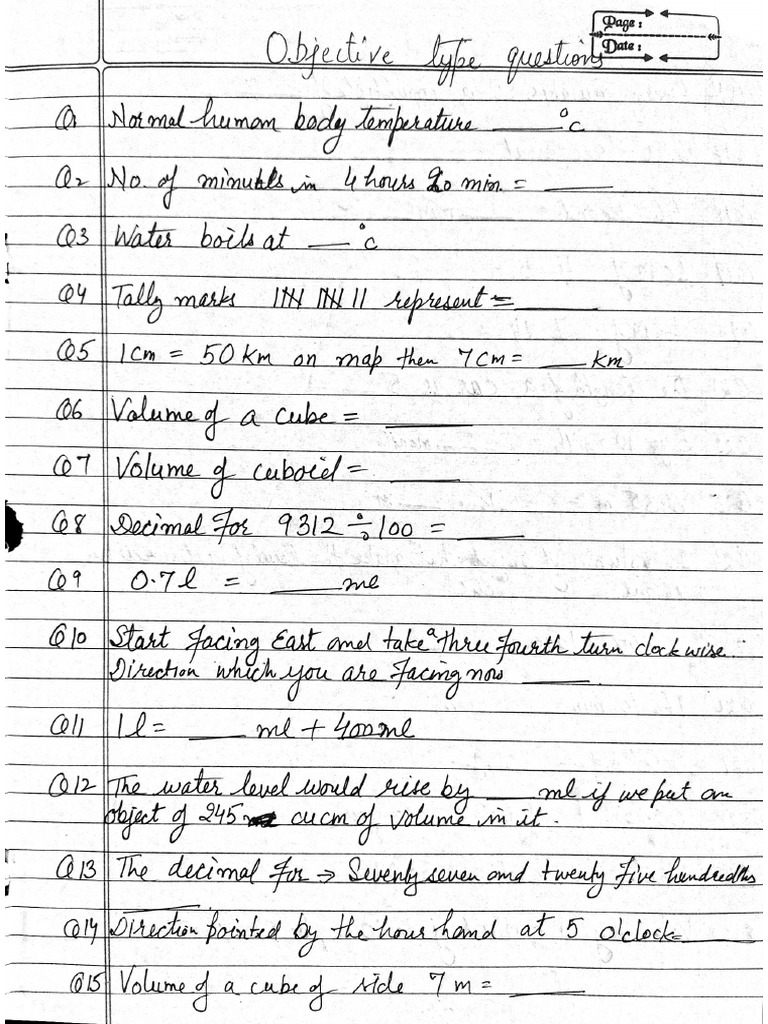 Page:
Date:
Objective type questions
Q1 Normal human body temperature ____°c
Q2 No. of minutes in 4 hours 20 min. = ____
Q3 Water boils at ___°c
Q4 Tally marks 𝍸 𝍸 || represent = ____
Q5 1cm = 50 km on map then 7cm = ___ km
Q6 Volume of a cube = ____
Q7 Volume of cuboid = ____
Q8 Decimal for 9312 ÷ 100 = ____
Q9 0.7l = ____ ml
Q10 Start facing East and take a three fourth turn clockwise.
Direction which you are facing now ____.
Q11 1l = ____ ml + 400ml
Q12 The water level would rise by ___ ml if we put an
object of 245 cucm of volume in it.
Q13 The decimal for → Seventy seven and twenty five hundredths
____
Q14 Direction pointed by the hour hand at 5 o'clock = ____
Q15 Volume of a cube of side 7 m = ____